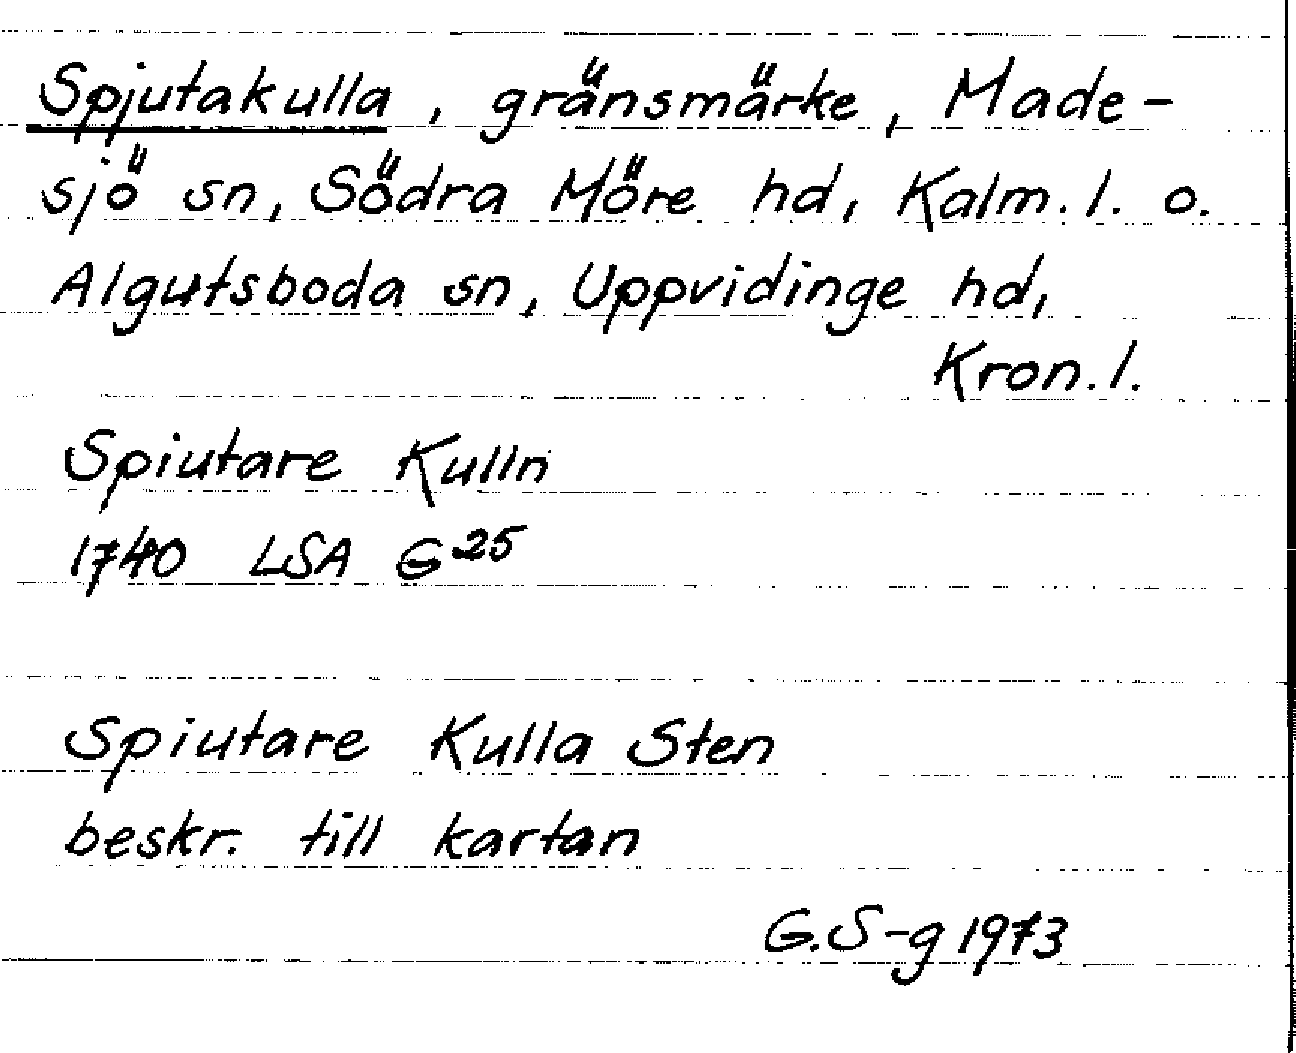 Spjutakulla, gränsmärke, Made-
sjö sn, Södra Möre hd, Kalm. l. o.
Algutsboda sn, Uppvidinge hd,
Kron. l.
Spiutare Kulln
1740 LSA G25
Spiutare Kulla Sten
beskr. till kartan
G.S-g 1973